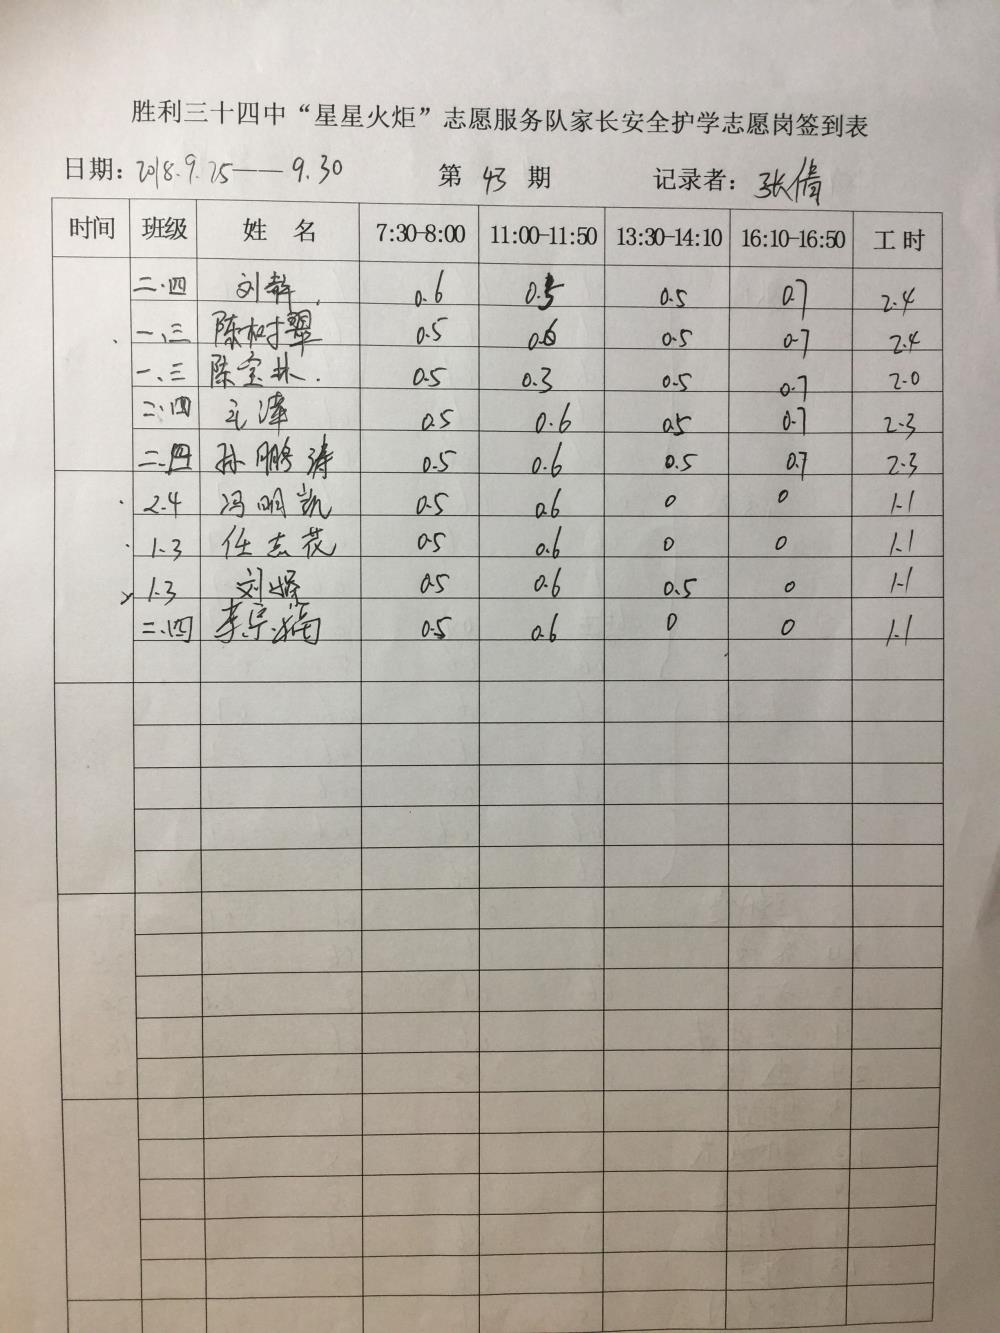 胜利三十四中“星星火炬”志愿服务队家长安全护学志愿岗签到表
日期：2018.9.25——9.30 第 43 期 记录者：张倩
时间 班级 姓 名 7:30-8:00 11:00-11:50 13:30-14:10 16:10-16:50 工 时
二.四 刘 0.6 0.5 0.5 0.7 2.4
一、三 陈树翠 0.5 0.6 0.5 0.7 2.4
一、三 陈宝林. 0.5 0.3 0.5 0.7 2.0
二.四 泽 0.5 0.6 0.5 0.7 2.3
二.四 孙鹏涛 0.5 0.6 0.5 0.7 2.3
2.4 冯明凯 0.5 0.6 0 0 1.1
1.3 任志花 0.5 0.6 0 0 1.1
1.3 刘 0.5 0.6 0.5 0 1.1
二.四 李宗 0.5 0.6 0 0 1.1